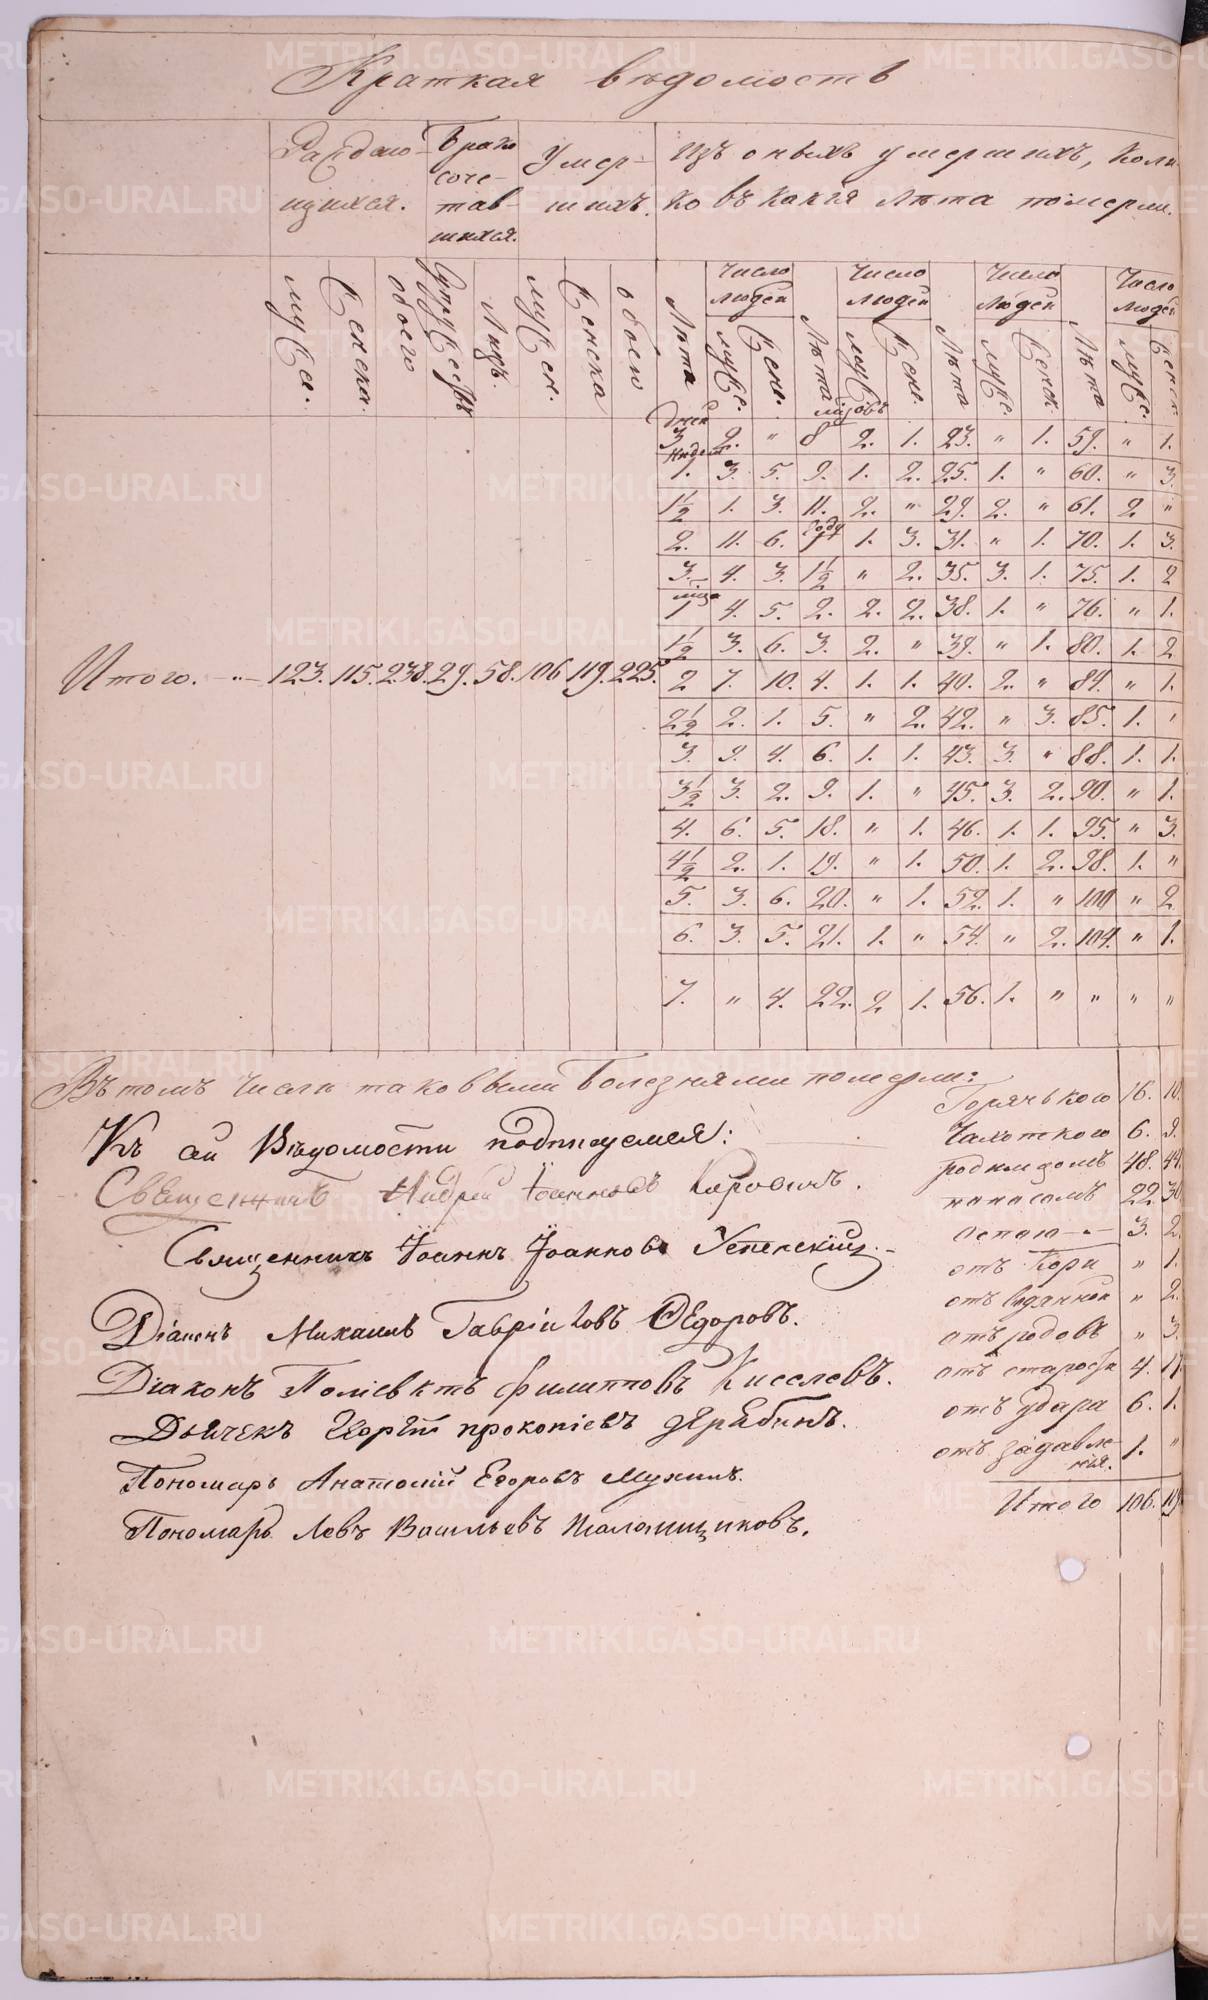 Краткая вѣдомость
Раждаю-
щихся.
Брако
соче-
тав-
шихся.
Умер-
шихъ.
Изъ оныхъ умершихъ, коли
ко въ какія лѣта померли.
мужс. Женска. обоего Супружествъ Лицъ. мужен. Женска обоего
Лѣта Число людей мужс. Женс. Лѣта Число людей мужс. Женс. Лѣта Число людей мужс. Женск. Лѣта Число людей мужс. Женск.
Дней мцовъ
3 2. " 8 2. 1. 23. " 1. 59. " 1.
Недели
1. 3. 5. 9. 1. 2. 25. 1. " 60. " 3.
1½ 1. 3. 11. 2. " 29. 2. " 61. 2 "
году
2. 11. 6. 1 1. 3. 31. " 1. 70. 1. 3.
3. 4. 3. 1½ " 2. 35. 3. 1. 75. 1. 2
мца
1 4. 5. 2. 2. 2. 38. 1. " 76. " 1.
1½ 3. 6. 3. 2. " 39. " 1. 80. 1. 2
Итого. 123. 115. 238. 29. 58. 106 119. 225. 2 7. 10. 4. 1. 1. 40. 2. " 84. " 1.
2½ 2. 1. 5. " 2. 42. " 3. 85. 1. "
3. 9. 4. 6. 1. 1. 43. 3. " 88. 1. 1.
3½ 3. 2. 9. 1. " 45. 3. 2. 90. " 1.
4. 6. 5. 18. " 1. 46. 1. 1. 95. " 3.
4½ 2. 1. 19. " 1. 50. 1. 2. 98. 1. "
5. 3. 6. 20. " 1. 52. 1. " 100 " 2.
6. 3. 5. 21. 1. " 54. " 2. 104. " 1.
7. " 4. 22. 2 1. 56. 1. " " " "
Въ томъ числѣ таковыми болезнями померли:
Горячькою 16. 10.
Чахоткою 6. 9.
родимцомъ 48. 44.
поносомъ 22. 30
Оспою 3. 2.
отъ Кори " 1.
отъ водянной " 2.
отъ родовъ " 3.
отъ старости 4. 17.
отъ удара 6. 1.
отъ задавле-
нія. 1. "
Итого 106. 119.
Къ сей Вѣдомости подписуемся:
Священникъ Андрей Іоанновъ
Священникъ Іоаннъ Іоанновъ Успенскій.
Діаконъ Михаилъ Гавріиловъ Федоровъ.
Діаконъ Поліевктъ Филипповъ Киселевъ.
Дьячекъ Георгій прокопіевъ дерябинъ.
Пономарь Анатолій Егоровъ Мухинъ.
Пономарь Левъ Васильевъ Топорищиковъ.
METRIKI.GASO-URAL.RU